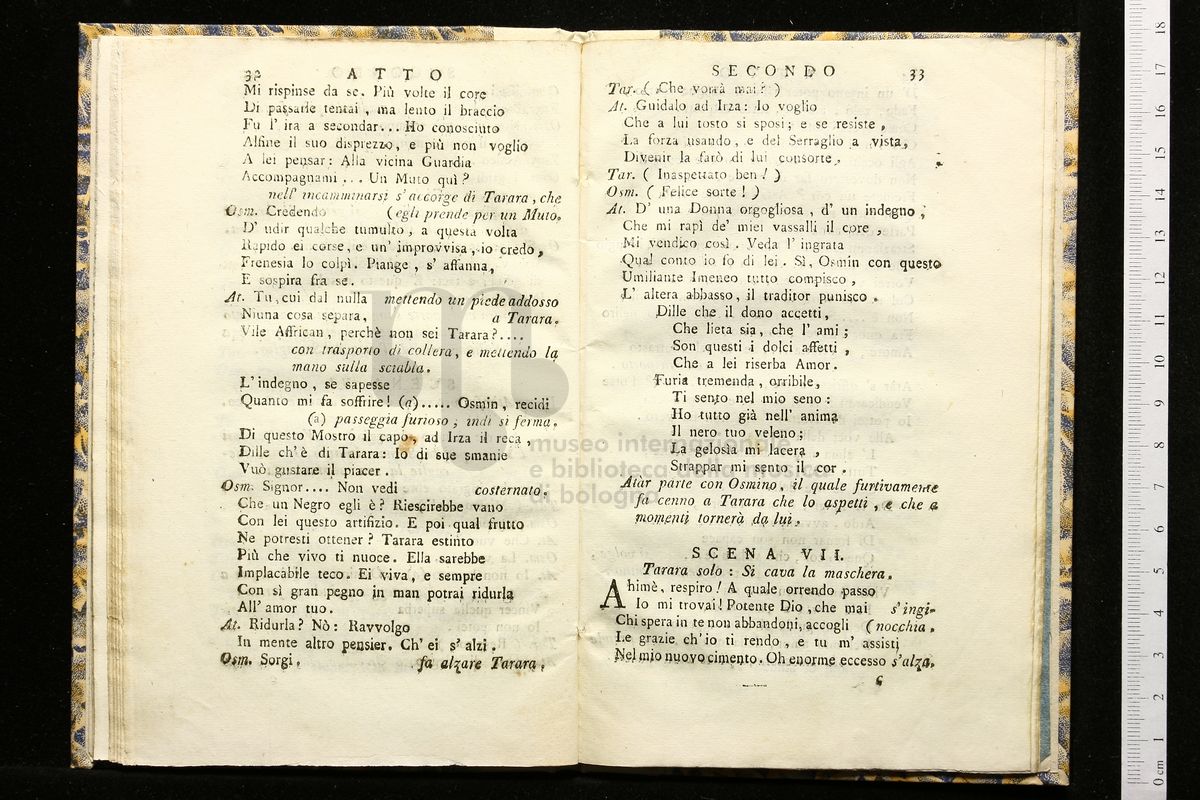 32 ATTO
Mi rispinse da se. Più volte il core
Di passarle tentai, ma lento il braccio
Fu l' ira a secondar... Ho conosciuto
Alfine il suo disprezzo, e più non voglio
A lei pensar: Alla vicina Guardia
Accompagnami... Un Muto quì?
nell' incamminarsi s'accorge di Tarara, che
Osm. Credendo (egli prende per un Muto.
D' udir qualche tumulto, a questa volta
Rapido ei corse, e un' improvvisa, io credo,
Frenesia lo colpì. Piange, s' affanna,
E sospira fra se.
At. Tu, cui dal nulla mettendo un piede addosso
Niuna cosa separa, a Tarara.
Vile Affrican, perchè non sei Tarara?....
con trasporto di collera, e mettendo la
mano sulla sciabla.
L' indegno, se sapesse
Quanto mi fa soffrire! (a)..... Osmin, recidi
(a) passeggia furioso; indi si ferma.
Di questo Mostro il capo, ad Irza il reca,
Dille ch' è di Tarara: Io di sue smanie
Vuò gustare il piacer.
Osm. Signor.... Non vedi costernato.
Che un Negro egli è? Riescirebbe vano
Con lei questo artifizio. E poi qual frutto
Ne potresti ottener? Tarara estinto
Più che vivo ti nuoce. Ella sarebbe
Implacabile teco. Ei viva, e sempre
Con sì gran pegno in man potrai ridurla
All' amor tuo.
At. Ridurla? Nò: Ravvolgo
In mente altro pensier. Ch' ei s' alzi.
Osm. Sorgi. fa alzare Tarara.
SECONDO 33
Tar. ( Che vorrà mai? )
At. Guidalo ad Irza: Io voglio
Che a lui tosto si sposi; e se resiste,
La forza usando, e del Serraglio a vista,
Divenir la farò di lui consorte.
Tar. ( Inaspettato ben! )
Osm. ( Felice sorte! )
At. D' una Donna orgogliosa, d' un indegno,
Che mi rapì de' miei vassalli il core,
Mi vendico così. Veda l' ingrata
Qual conto io fo di lei. Sì, Osmin con questo
Umiliante Imeneo tutto compisco,
L' altera abbasso, il traditor punisco.
Dille che il dono accetti,
Che lieta sia, che l' ami;
Son questi i dolci affetti,
Che a lei riserba Amor.
Furia tremenda, orribile,
Ti sento nel mio seno:
Ho tutto già nell' anima
Il nero tuo veleno;
La gelosìa mi lacera,
Strappar mi sento il cor.
Atar parte con Osmino, il quale furtivamente
fa cenno a Tarara che lo aspetti, e che a
momenti tornerà da lui.
SCENA VII.
Tarara solo: Si cava la maschera.
Ahimè, respiro! A quale orrendo passo
Io mi trovai! Potente Dio, che mai s' ingi-
Chi spera in te non abbandoni, accogli (nocchia.
Le grazie ch' io ti rendo, e tu m' assisti
Nel mio nuovo cimento. Oh enorme eccesso s'alza.
C
museo internazionale
e biblioteca della musica
di bologna
0 cm 1 2 3 4 5 6 7 8 9 10 11 12 13 14 15 16 17 18